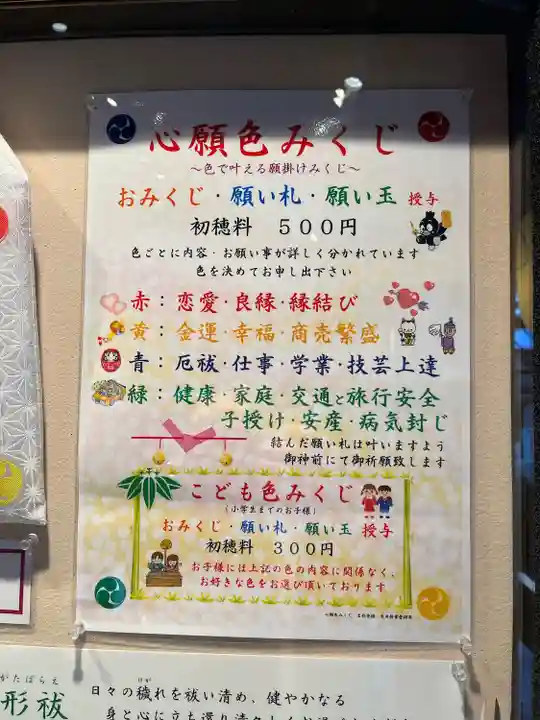 心願色みくじ
～色で叶える願掛けみくじ～
おみくじ・願い札・願い玉 授与
初穂料 500円
色ごとに内容・お願い事が詳しく分かれています
色を決めてお申し出下さい
赤：恋愛・良縁・縁結び
黄：金運・幸福・商売繁盛
青：厄祓・仕事・学業・技芸上達
緑：健康・家庭・交通と旅行安全
子授け・安産・病気封じ
結んだ願い札は叶いますよう
御神前にて御祈願致します
こども色みくじ
（小学生までのお子様）
おみくじ・願い札・願い玉 授与
初穂料 300円
お子様には上記の色の内容に関係なく、
お好きな色をお選び頂いております
心願色みくじ
がたばらえ
形祓
日々の穢れを祓い清め、健やかなる
けが